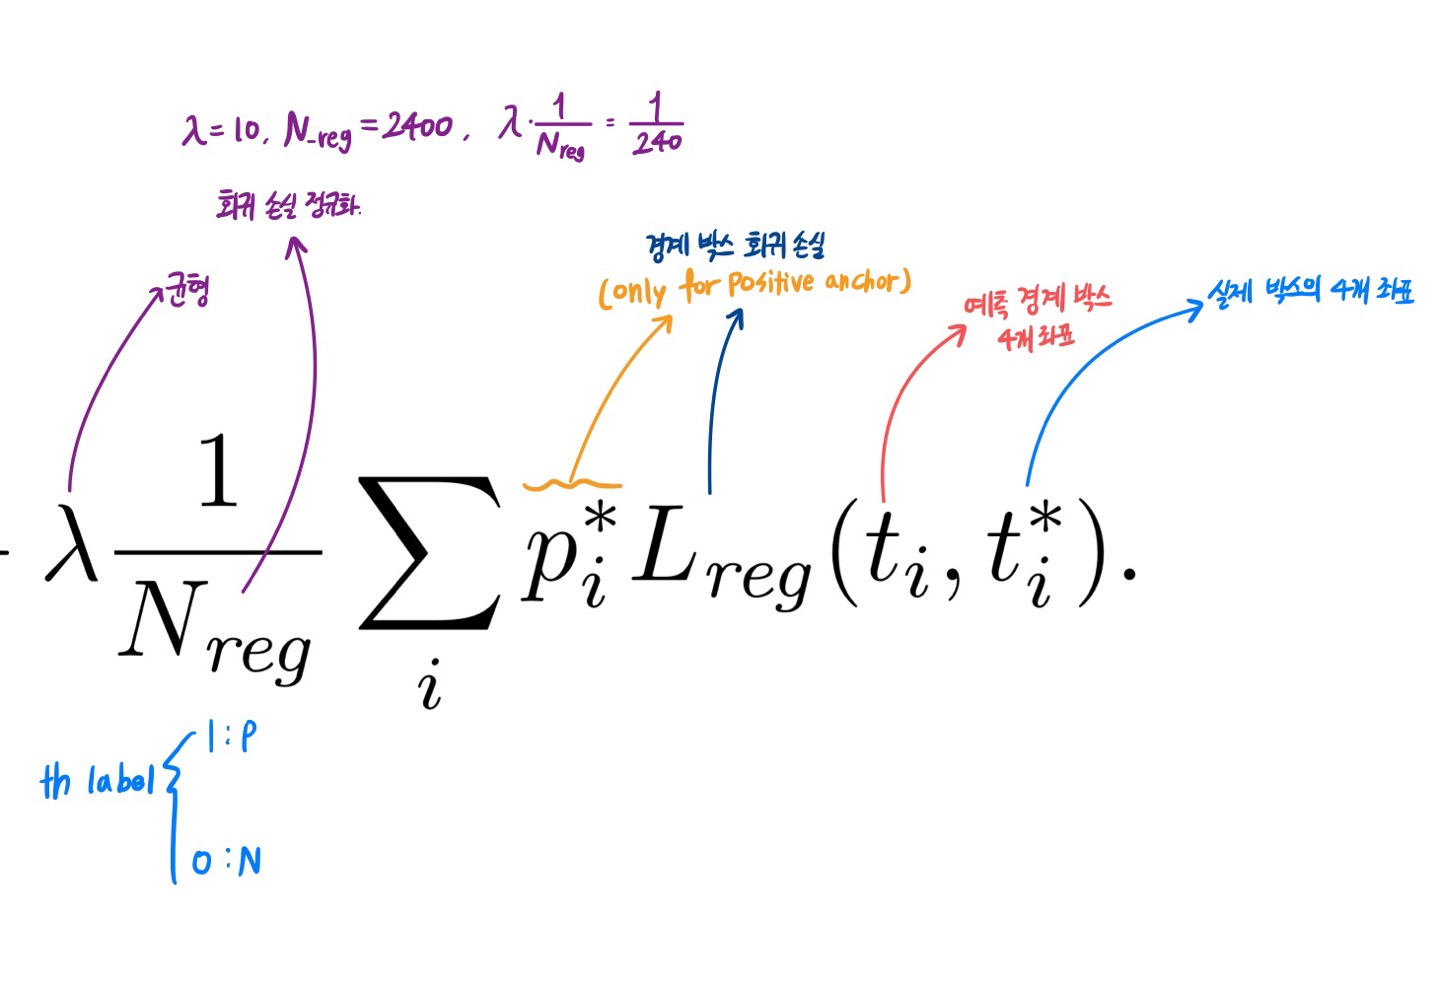 λ = 10, N_reg = 2400, λ · 1/N_reg = 1/240
회귀 손실 정규화.
경계 박스 회귀 손실
(only for positive anchor)
균형
예측 경계 박스
4개 좌표
실제 박스의 4개 좌표
λ 1/N_reg ∑_i p_i^* L_reg(t_i, t_i^*).
th label { 1 : P
0 : N